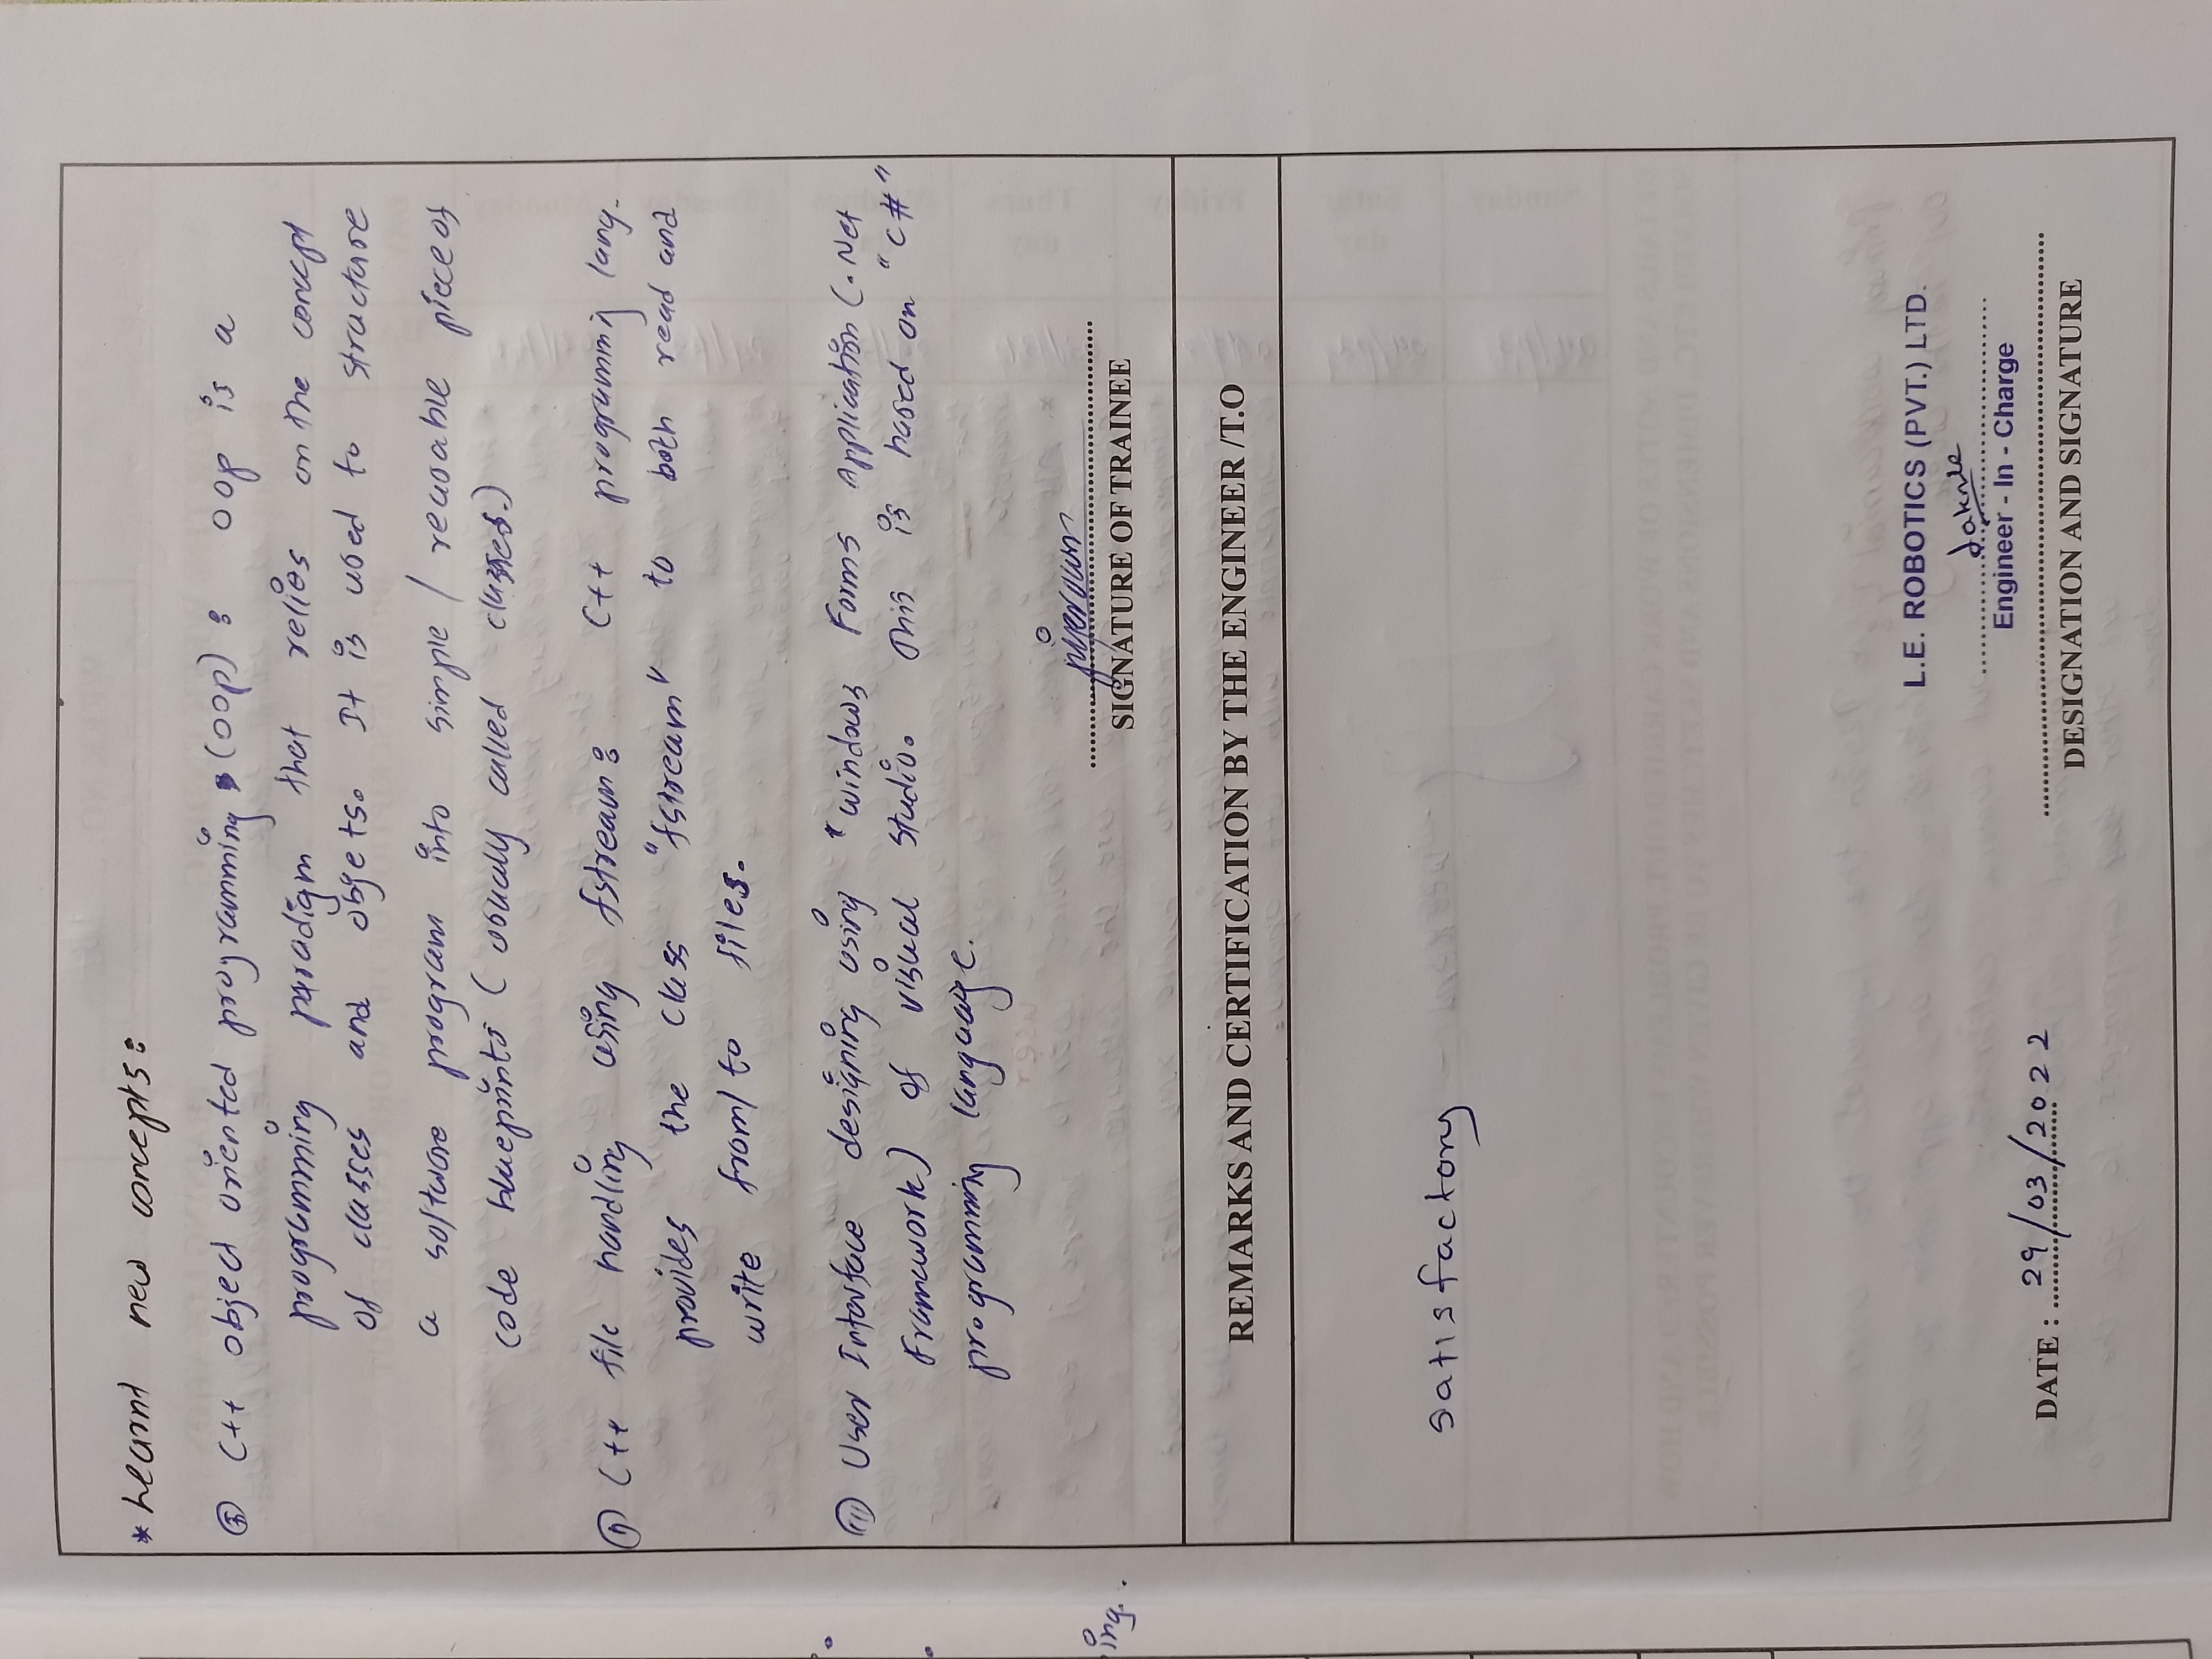 * Learnt new concepts:
C++ object oriented programming (OOP) : OOP is a
programming paradigm that relies on the concept
of classes and objets. It is used to structure
a software program into simple / reusable piece of
code blueprints ( usually called classes.)
C++ file handling using fstream: C++ programming lang.
provides the class "fstream" to both read and
write from/to files.
(iii) User Interface designing using "windows Forms Application (.Net
Framework) of visual Studio. This is based on "C#"
programming language.
ing.
SIGNATURE OF TRAINEE
REMARKS AND CERTIFICATION BY THE ENGINEER /T.O
satisfactory
L.E. ROBOTICS (PVT.) LTD.
Engineer - In - Charge
DATE : 29/03/2022
DESIGNATION AND SIGNATURE